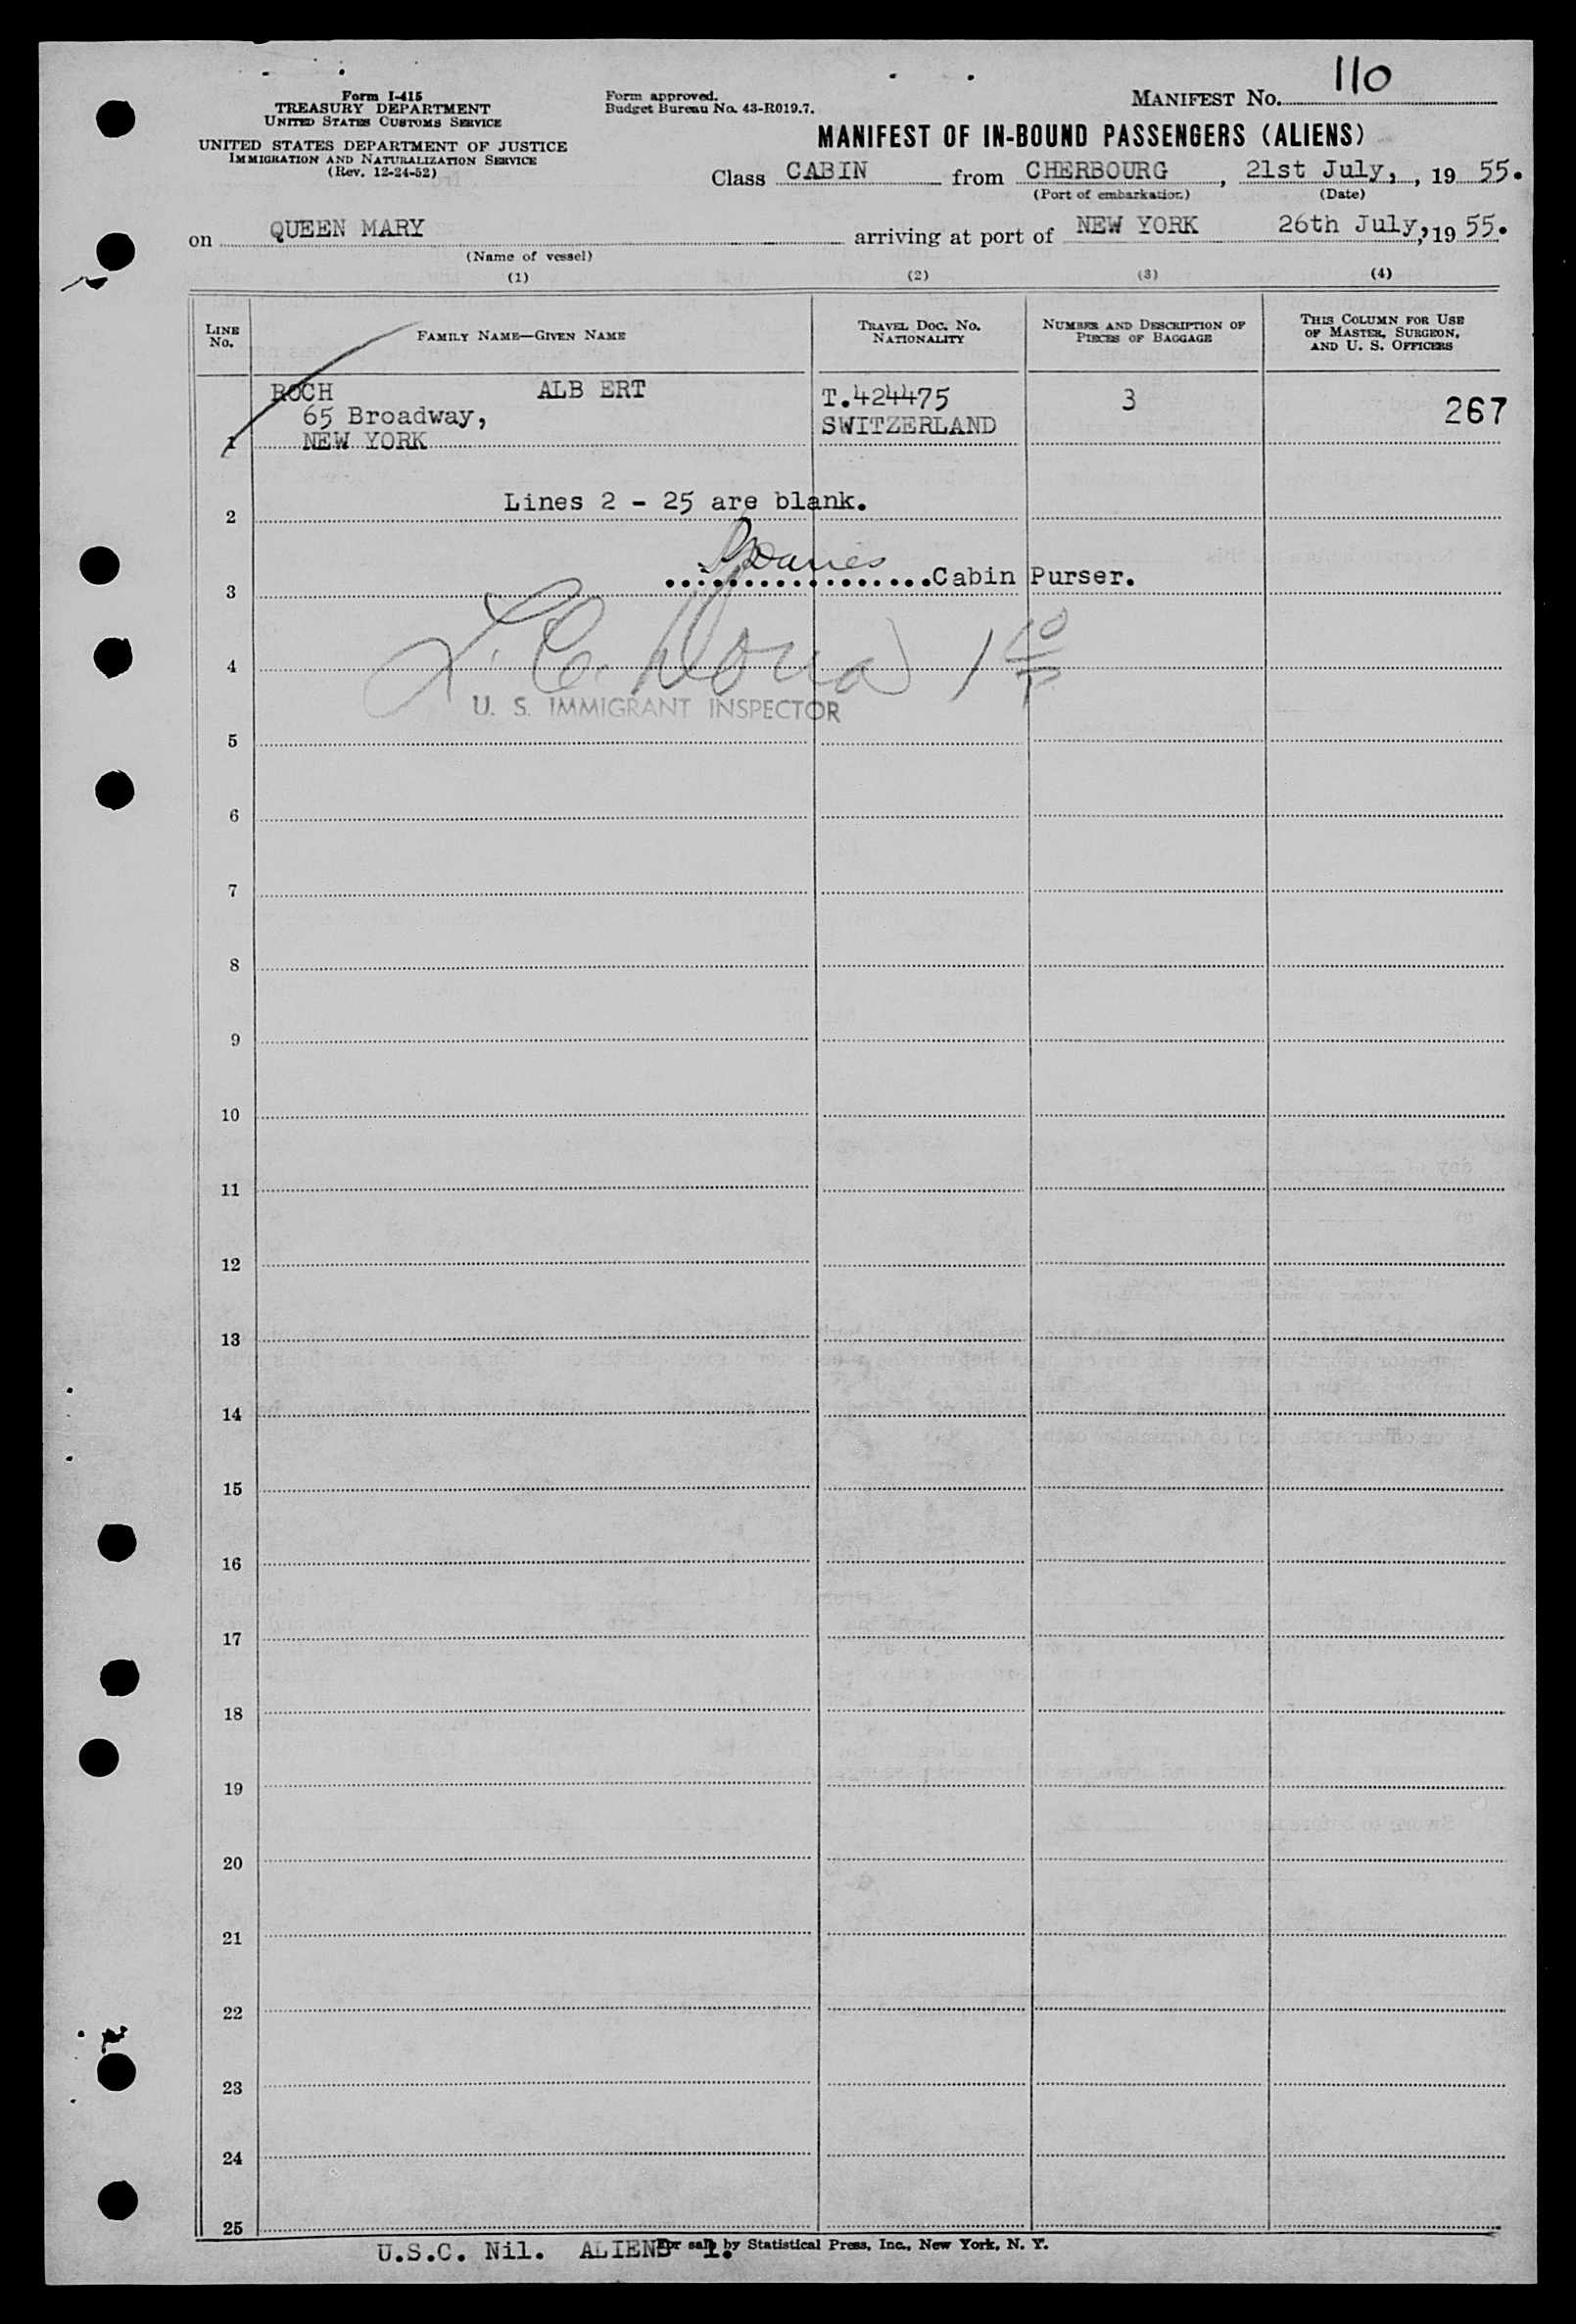 110
Form I-415
TREASURY DEPARTMENT
UNITED STATES CUSTOMS SERVICE
UNITED STATES DEPARTMENT OF JUSTICE
IMMIGRATION AND NATURALIZATION SERVICE
(Rev. 12-24-52)
Form approved.
Budget Bureau No. 43-R019.7.
MANIFEST NO.
MANIFEST OF IN-BOUND PASSENGERS (ALIENS)
Class CABIN from CHERBOURG, 21st July, , 19 55.
(Port of embarkation) (Date)
on QUEEN MARY arriving at port of NEW YORK 26th July, , 19 55.
(Name of vessel)
(1) (2) (3) (4)
LINE NO.
FAMILY NAME—GIVEN NAME
TRAVEL DOC. NO. NATIONALITY
NUMBER AND DESCRIPTION OF PIECES OF BAGGAGE
THIS COLUMN FOR USE OF MASTER, SURGEON, AND U. S. OFFICERS
ROCH ALB ERT T.424475 3 267
65 Broadway, SWITZERLAND
1 NEW YORK
Lines 2 - 25 are blank.
2
................Cabin Purser.
3
4
U. S. IMMIGRANT INSPECTOR
5
6
7
8
9
10
11
12
13
14
15
16
17
18
19
20
21
22
23
24
25
U.S.C. Nil. ALIENS 1.
For sale by Statistical Press, Inc., New York, N. Y.